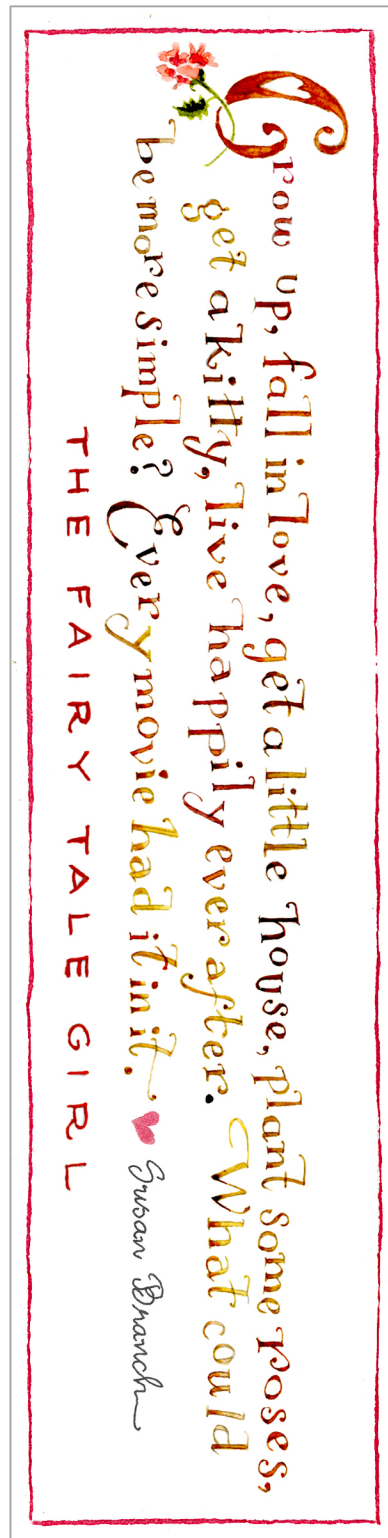 Grow up, fall in love, get a little house, plant some roses,
get a kitty, live happily ever after. What could
be more simple? Every movie had it in it. ♥ Susan Branch
THE FAIRY TALE GIRL